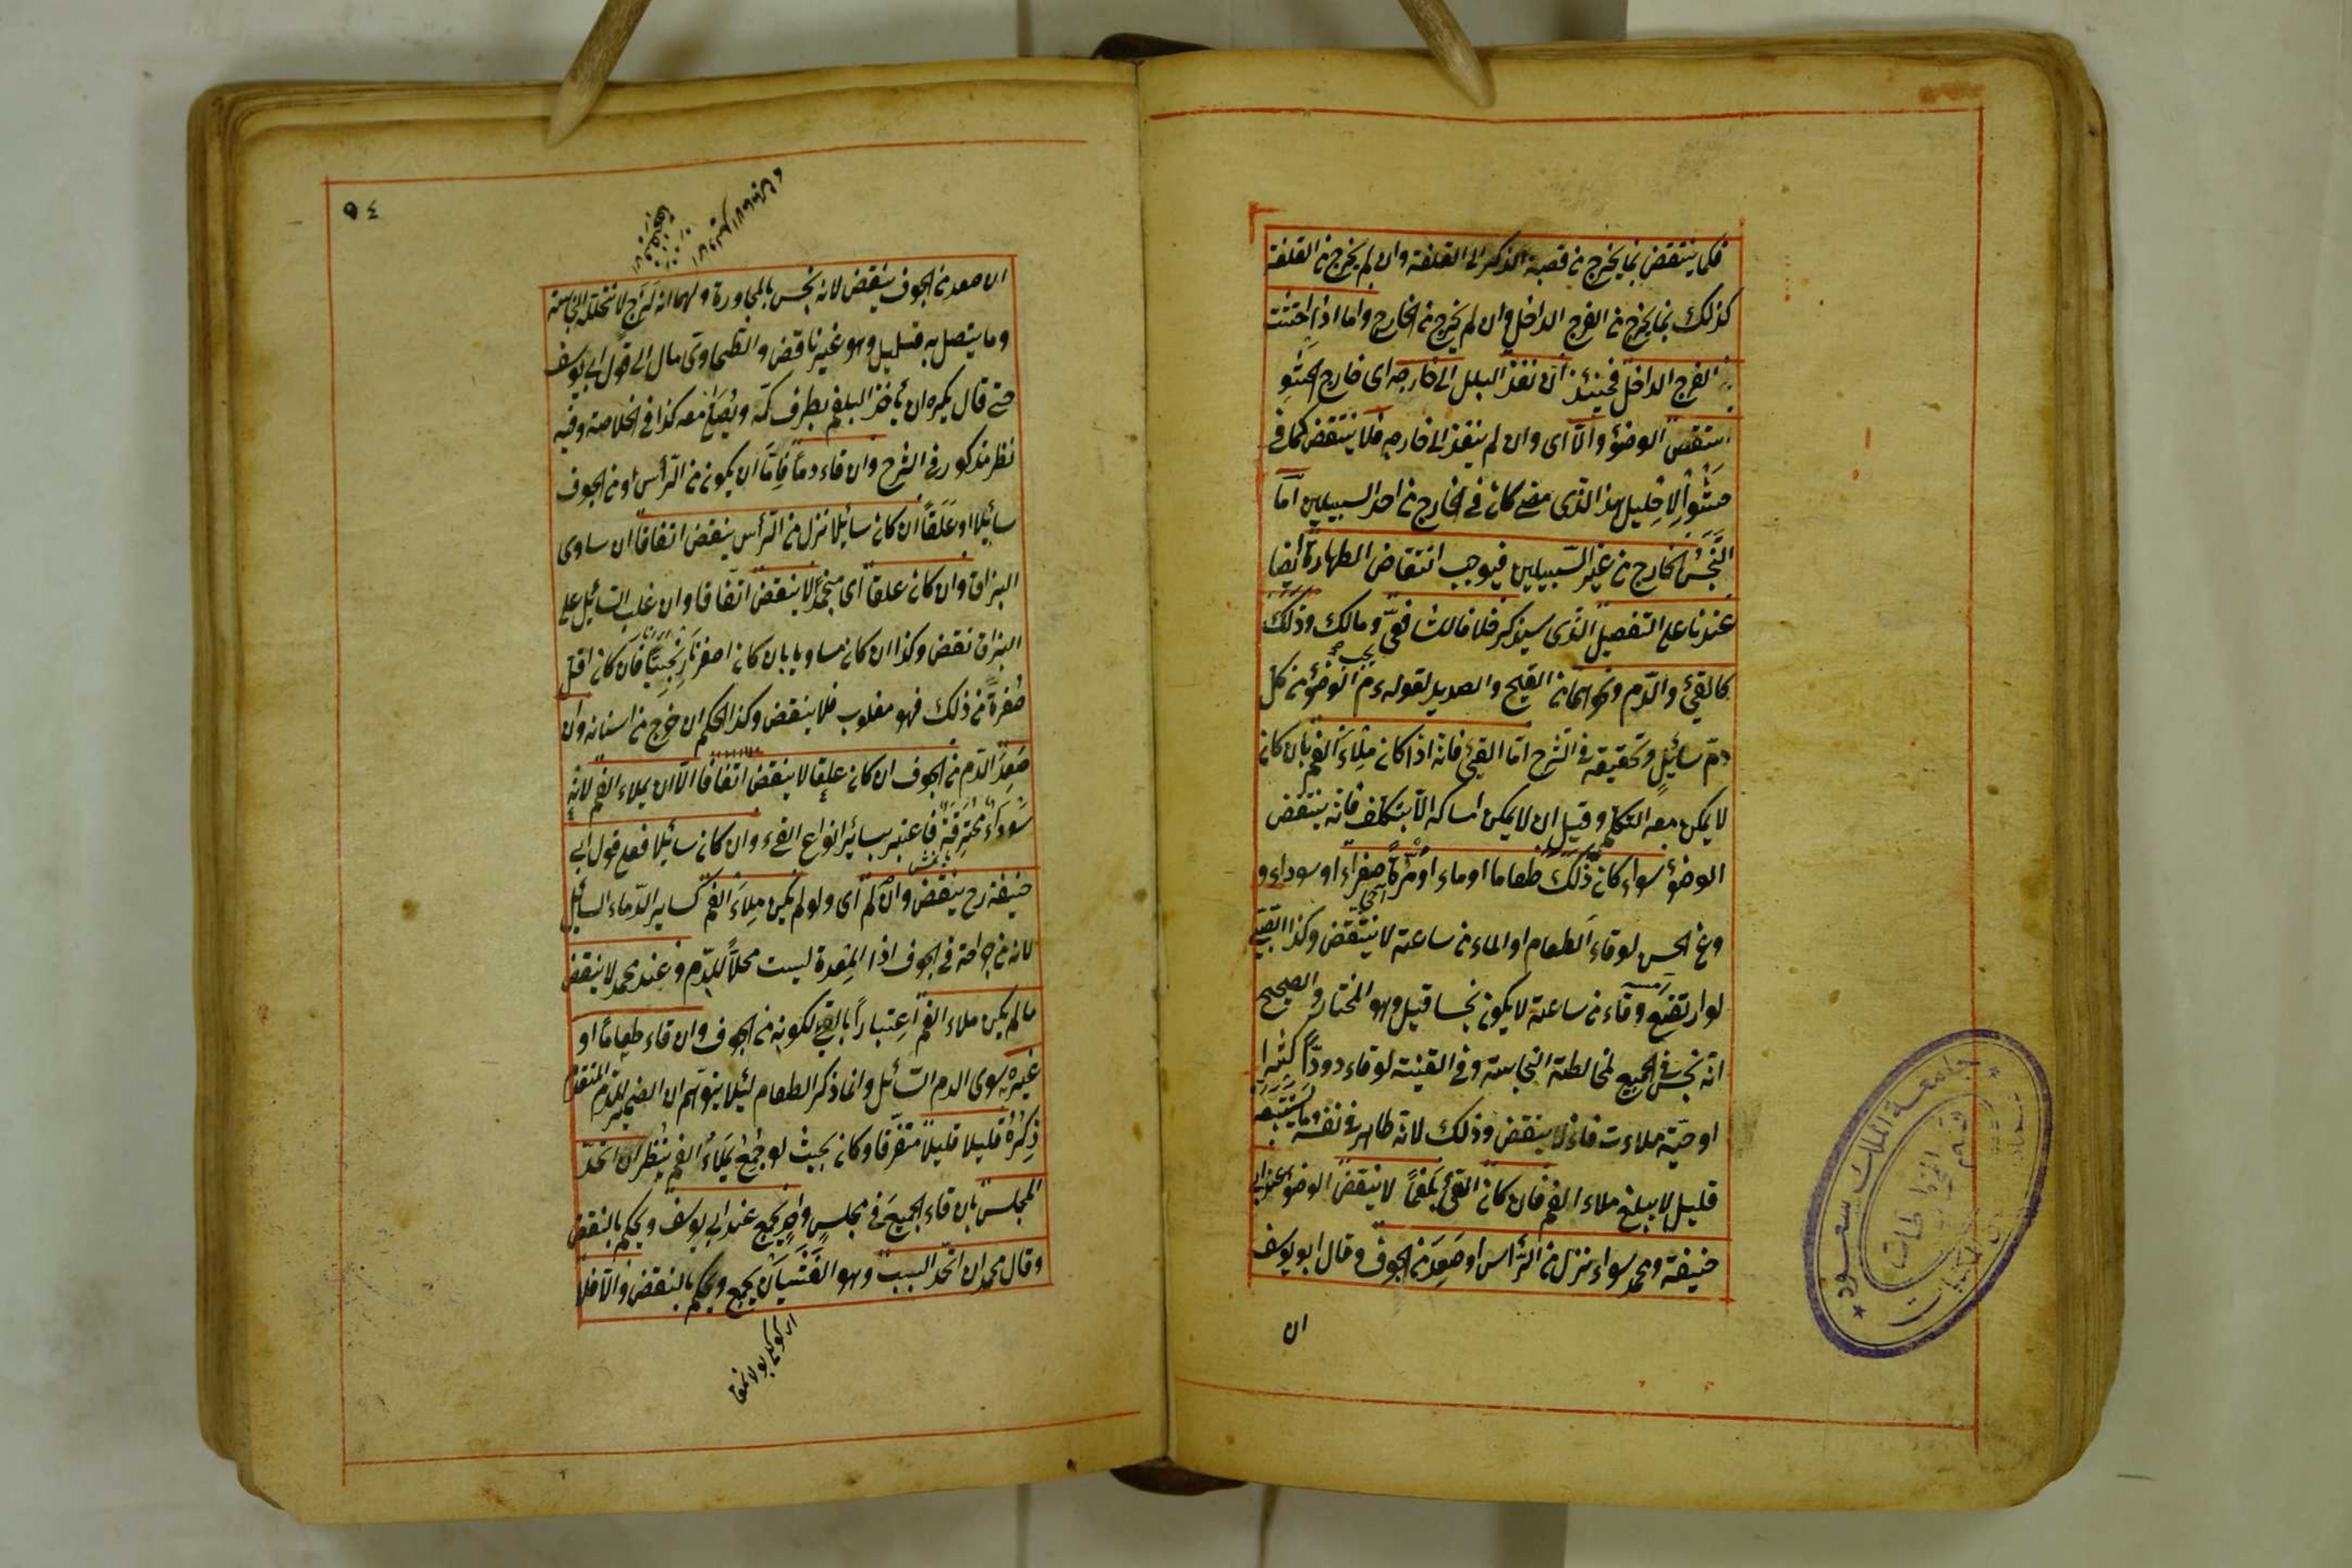 فكما ينتقض بما يخرج من قصبة الذكر الى القلفة وان لم يخرج من القلفة
كذلك بما يخرج من الفرج الداخل وان لم يخرج من الخارج واما اذا احتشت
في الفرج الداخل فحينئذ ان نفذ البلل الى خارجه اى خارج الحشو
انتقض الوضوء والا اى وان لم ينفذ الى خارجه فلا ينتقض كما في
حشو الاحليل هذا الذى مضى كان في الخارج من احد السبيلين اما
النجس الخارج من غير السبيلين فيوجب انتقاض الطهارة ايضا
عندنا على التفصيل الذى سيذكر خلافا للشافعى ومالك وذلك
كالقئ والدم ونحوهما من القيح والصديد لقوله عم الوضوء من كل
دم سائل وتحقيقه في الشرح اما القئ فانه اذا كان ملاء الفم بان كان
لا يمكن معه التكلم وقيل ان لا يمكن امساكه الا بتكلف فانه ينتقض
الوضوء سواء كان ذلك طعاما او ماء او مرة صفراء او سوداء و
وعن الحسن لو قاء الطعام او الماء من ساعته لا ينتقض وكذا الصبى
لو ارتضع وقاء من ساعته لا يكون نجسا قيل وهو المختار والصحيح
انه نجس في الجميع لمخالطة النجاسة وفي القنية لو قاء دودا كثيرا
او حية ملاءت فاه لا ينقض وذلك لانه طاهر في نفسه وما يستتبعه
قليل لا يبلغ ملاء الفم فان كان القئ بلغما لا ينقض الوضوء عند ابى
حنيفة ومحمد سواء نزل من الرأس او صعد من الجوف وقال ابو يوسف
ان
٥٤
ان صعد من الجوف ينقض لانه نجس بالمجاورة ولهما انه لزج لا تتخلله النجاسة
وما يتصل به قليل وهو غير ناقض والطحاوى مال الى قول ابى يوسف
حتى قال يكره ان يأخذ البلغم بطرف كمه ويصلى معه كذا في الخلاصة وفيه
نظر مذكور في الشرح وان قاء دما فاما ان يكون من الرأس او من الجوف
سائلا او علقا ان كان سائلا نزل من الرأس ينقض اتفاقا ان ساوى
البزاق وان كان علقا اى منجمدا لا ينقض اتفاقا وان غلب السائل على
البزاق نقض وكذا ان كان مساويا بان كان اصفر نارنجيا فان كان اقل
صفرة من ذلك فهو مغلوب فلا ينقض وكذا الحكم ان خرج من اسنانه وان
صعد الدم من الجوف ان كان علقا لا ينقض اتفاقا الا ان يملاء الفم لانه
سوداء محترقة فاعتبر بسائر انواع القئ وان كان سائلا فعلى قول ابى
حنيفة رح ينقض وان لم اى ولو لم يكن ملاء الفم كسائر الدماء السائل
لانه من جراحة في الجوف اذ المعدة ليست محلا للدم وعند محمد لا ينقض
مالم يكن ملاء الفم اعتبارا بالقئ لكونه من الجوف وان قاء طعاما او
غيره سوى الدم السائل وانما ذكر الطعام لئلا يتوهم ان الضمير للدم المتقدم
ذكره قليلا قليلا متفرقا وكان بحيث لو جمع يملاء الفم ينظر ان اتحد
المجلس بان قاء الجميع في مجلس واحد يجمع عند ابى يوسف ويحكم بالنقض
وقال محمد ان اتحد السبب وهو الغثيان يجمع ويحكم بالنقض والا فلا
جامعة الملك سعود
قسم المخطوطات